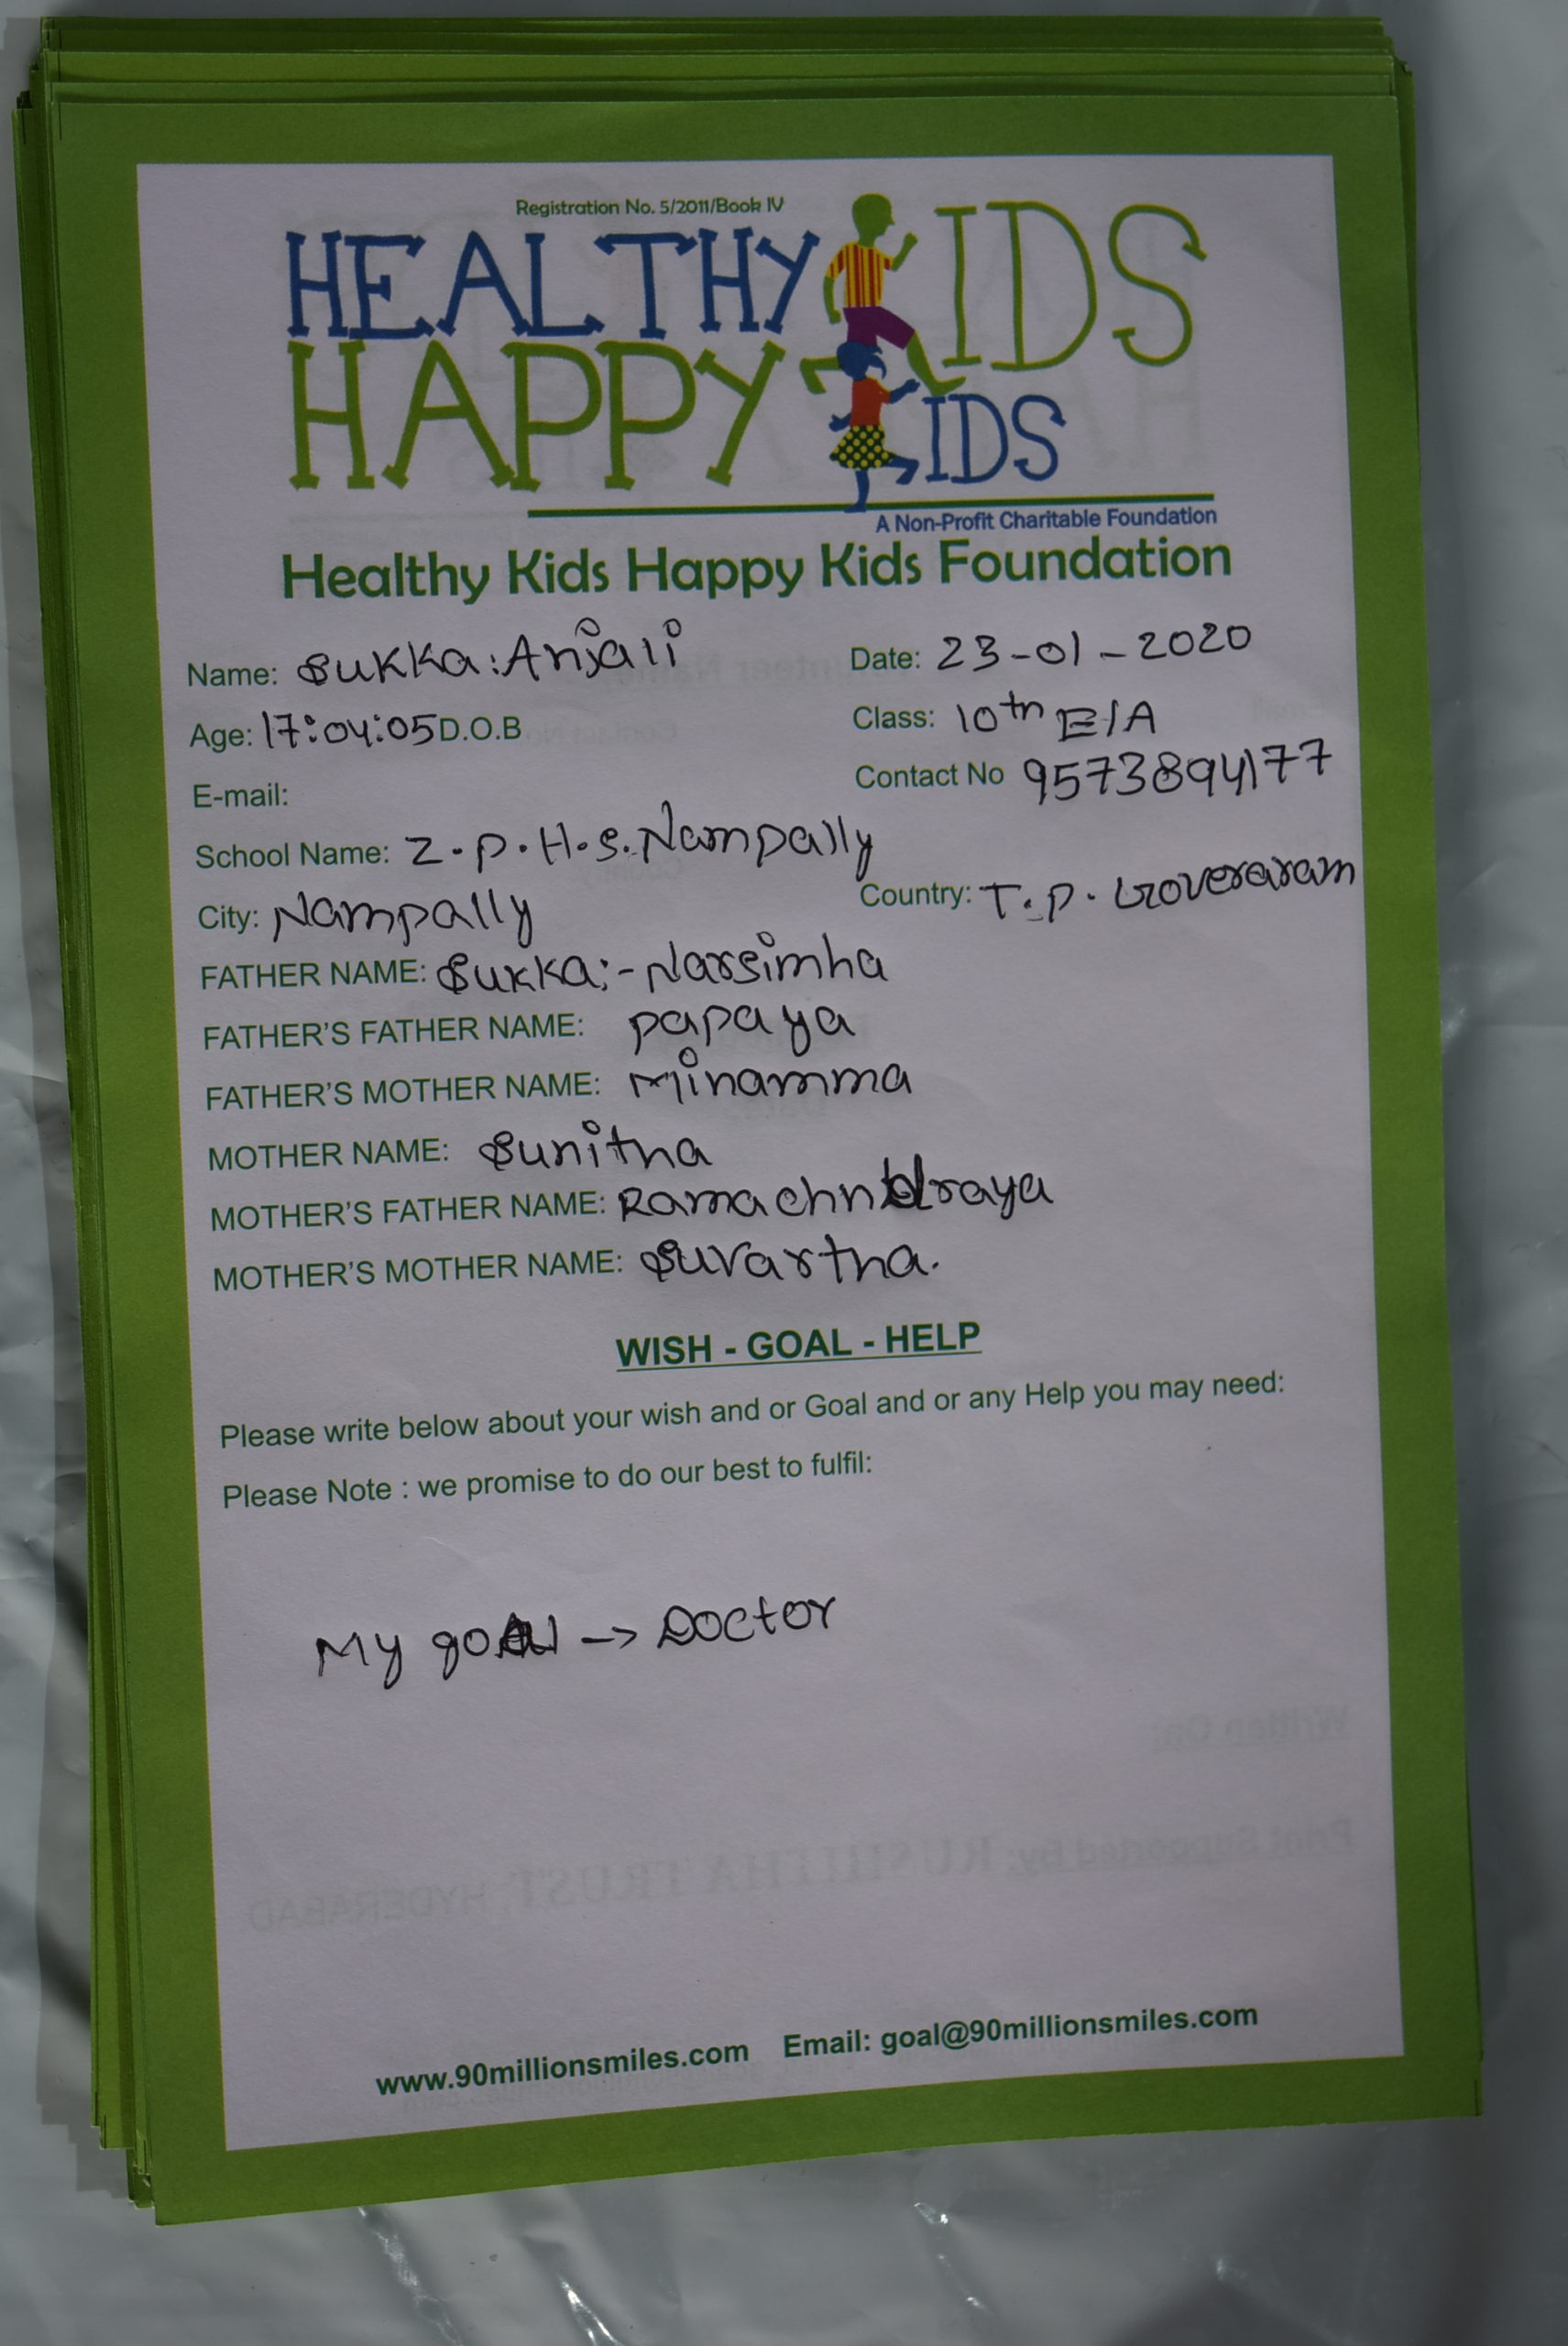 Registration No. 5/2011/Book IV
HEALTHY KIDS
HAPPY KIDS
A Non-Profit Charitable Foundation
Healthy Kids Happy Kids Foundation
Name: Sukka:Anjali Date: 23-01-2020
Age: 17:04:05 D.O.B Class: 10th E/A
E-mail: Contact No 9573894177
School Name: Z.P.H.S. Nampally
City: Nampally Country: T.P. Goveraram
FATHER NAME: Sukka:- Narsimha
FATHER'S FATHER NAME: papaya
FATHER'S MOTHER NAME: Minamma
MOTHER NAME: Sunitha
MOTHER'S FATHER NAME: Ramachndraya
MOTHER'S MOTHER NAME: Suvartha.
WISH - GOAL - HELP
Please write below about your wish and or Goal and or any Help you may need:
Please Note : we promise to do our best to fulfil:
My goal -> Doctor
www.90millionsmiles.com Email: goal@90millionsmiles.com